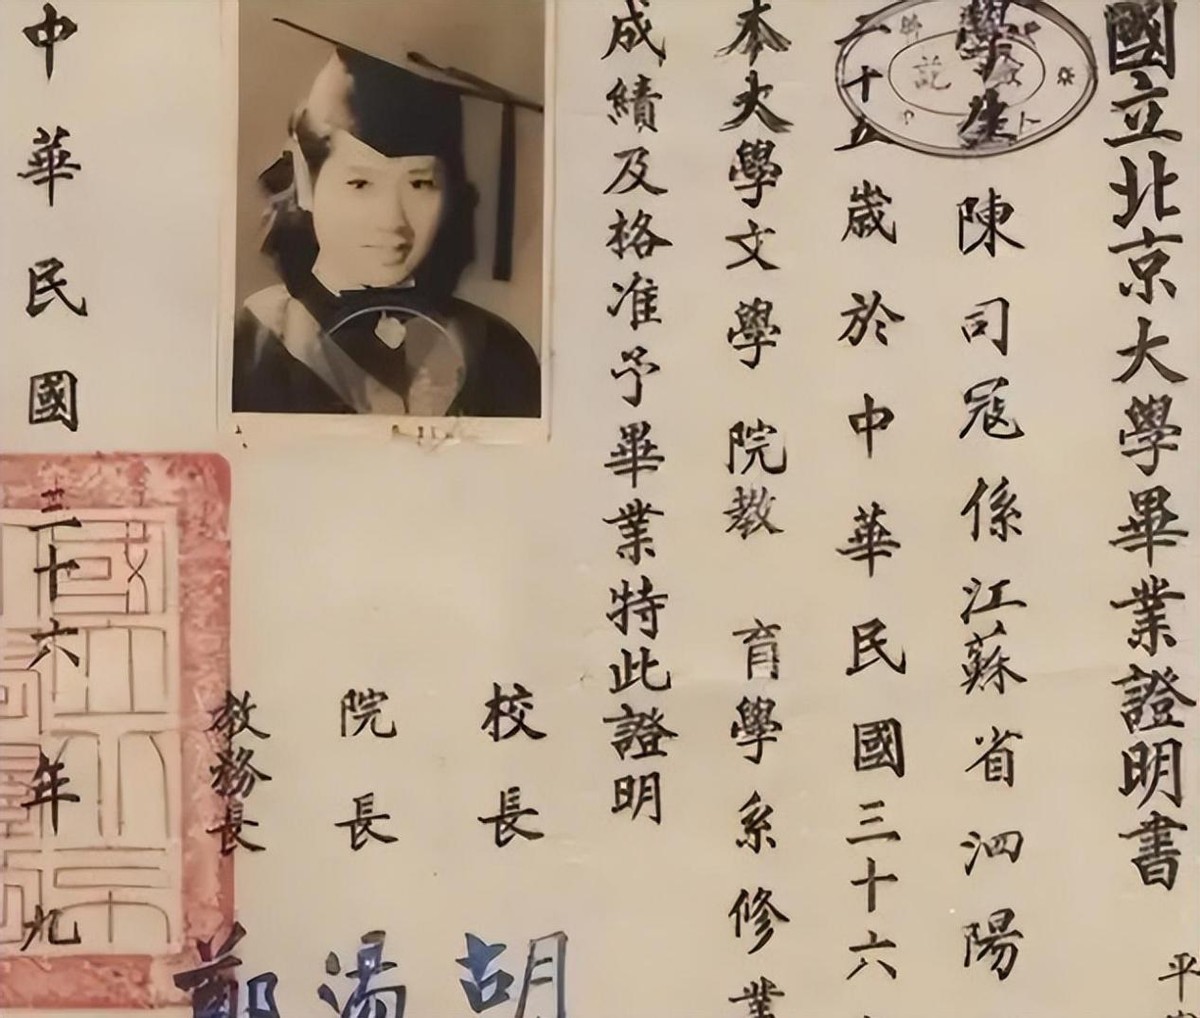 國立北京大學畢業證明書
平
學生陳司寇係江蘇省泗陽
二十五歲於中華民國三十六
本大學文學院教育學系修業
成績及格准予畢業特此證明
校長 胡
院長 湯
教務長 鄭
中華民國三十六年九